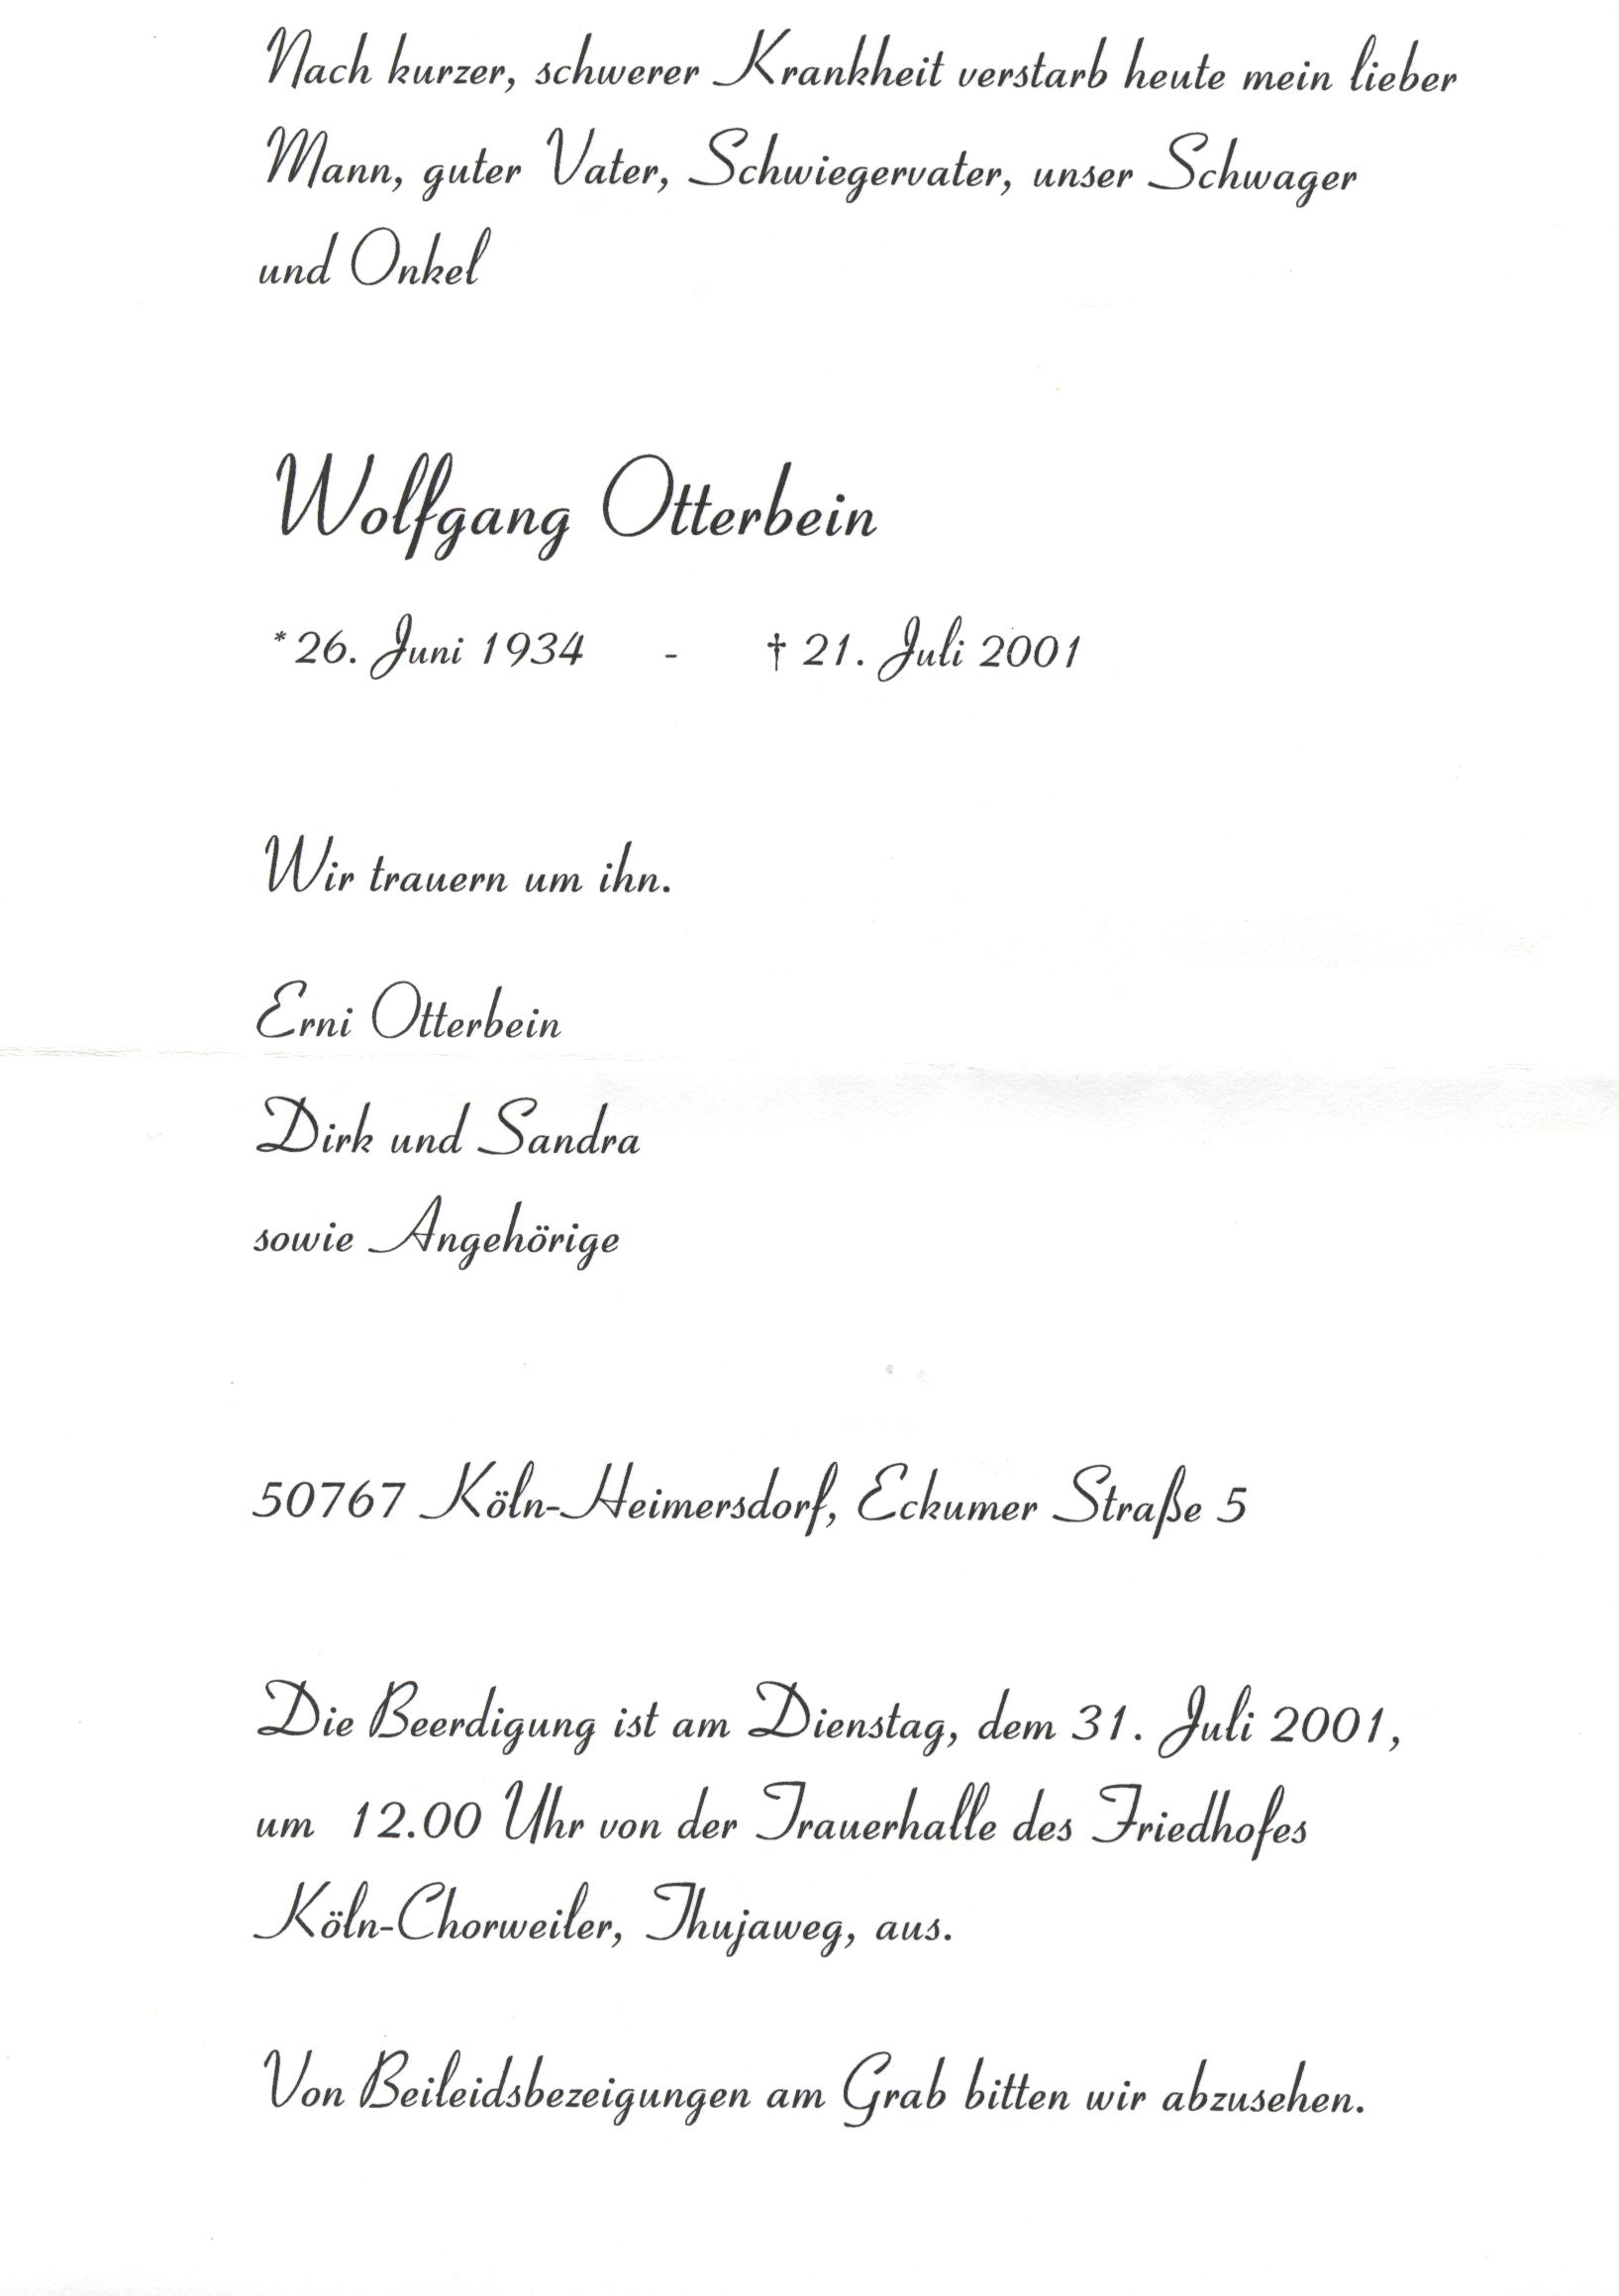 Nach kurzer, schwerer Krankheit verstarb heute mein lieber
Mann, guter Vater, Schwiegervater, unser Schwager
und Onkel
Wolfgang Otterbein
* 26. Juni 1934 - † 21. Juli 2001
Wir trauern um ihn.
Erni Otterbein
Dirk und Sandra
sowie Angehörige
50767 Köln-Heimersdorf, Eckumer Straße 5
Die Beerdigung ist am Dienstag, dem 31. Juli 2001,
um 12.00 Uhr von der Trauerhalle des Friedhofes
Köln-Chorweiler, Thujaweg, aus.
Von Beileidsbezeigungen am Grab bitten wir abzusehen.